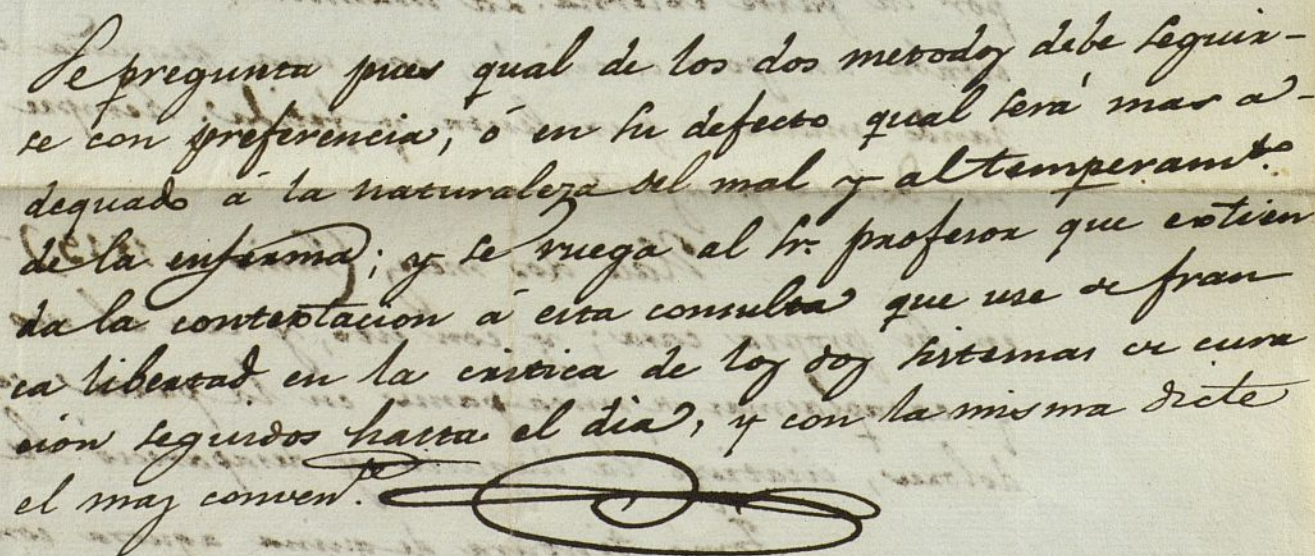 Se pregunta pues qual de los dos metodos debe seguir-
se con preferencia, ó en su defecto qual será mas a-
dequado á la naturaleza del mal y al temperam.to
de la enferma; y se ruega al Sr. profesor que extien
da la contextacion á esta consulta que use de fran
ca libertad en la critica de los dos sistemas de cura
cion seguidos hasta el dia, y con la misma dicte
el mas conven.te